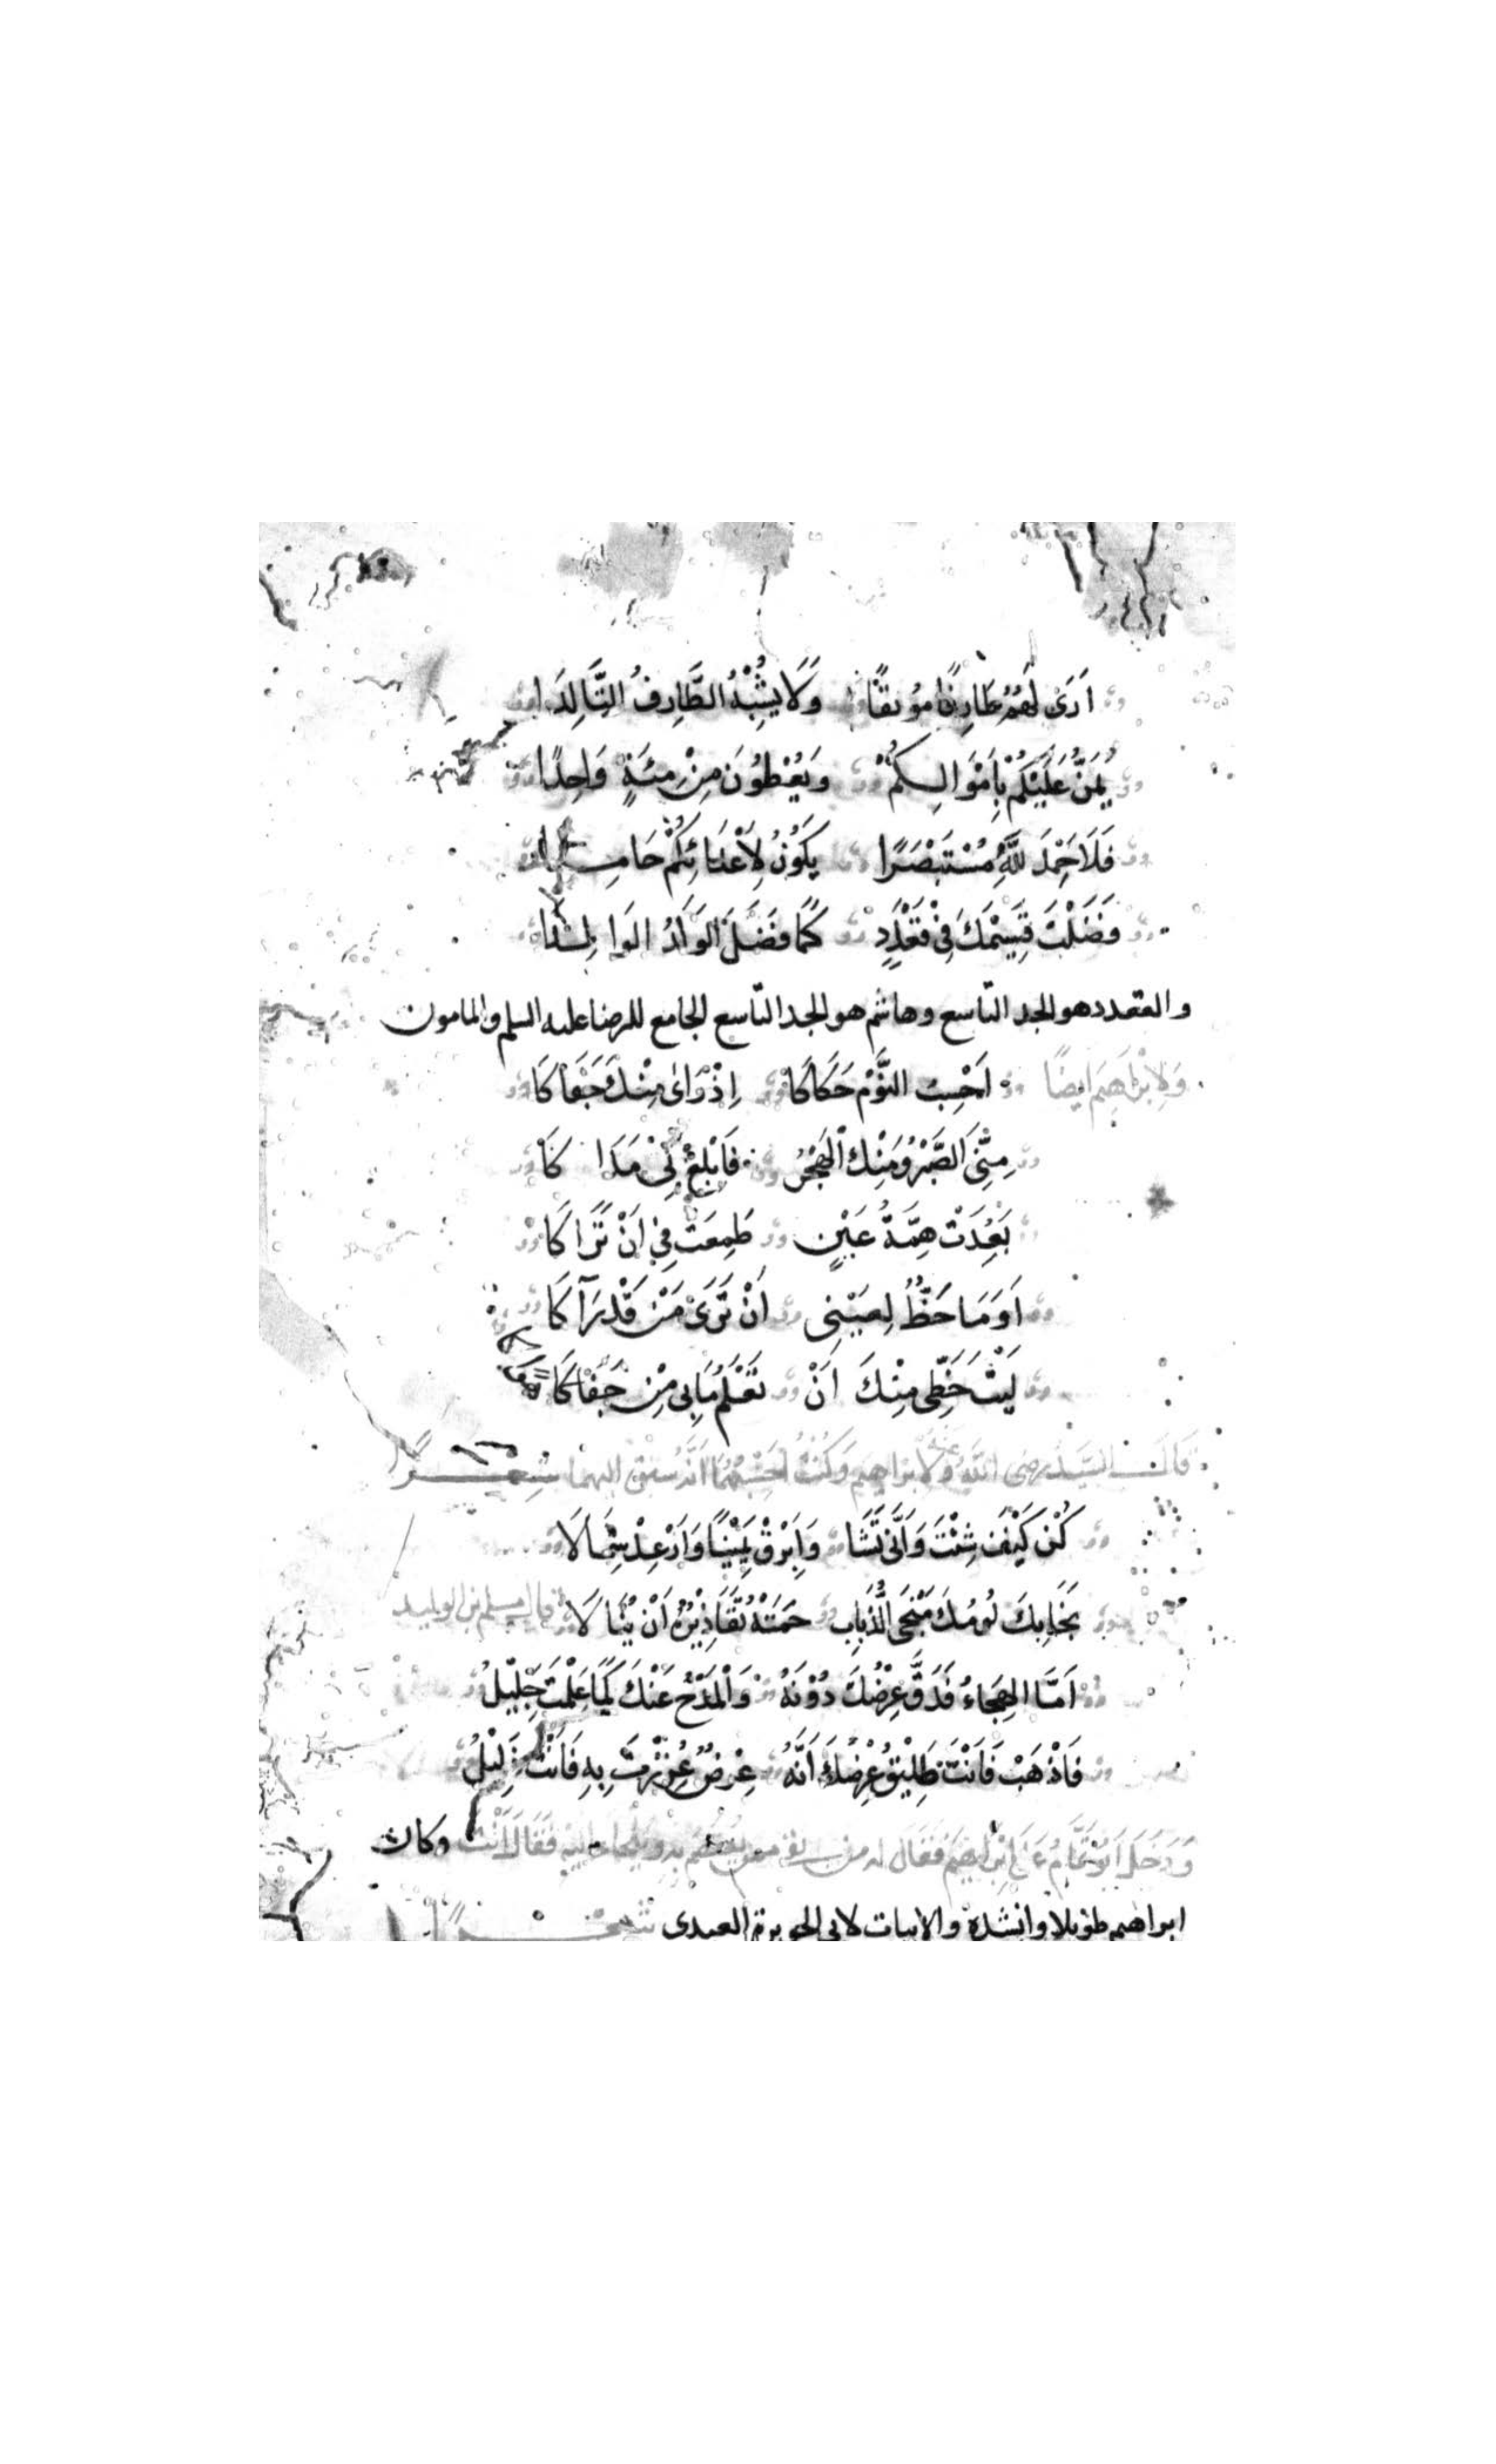 اَرَى لَهُمْ طَارِفًا مُونِقًا وَلَا يُشْبِهُ الطَّارِفُ التَّالِدَا
يُمَنُّ عَلَيْكُمْ بِاَمْوَالِكُمْ وَيُعْطُونَ مِنْ مِئَةٍ وَاحِدًا
فَلَا حَمِدَ للّٰهُ مُسْتَبْصِرًا يَكُونُ لِاَعْدَائِكُمْ حَامِدا
فَضَلْتَ قَسِيْمَكَ فِيْ قُعْدُدٍ كَمَا فَضَلَ الوَالِدُ الوَالِدا
والقعدد هو الجد التّاسع وهاشم هو الجد التّاسع الجامع للرضا عليه السلم والمامون
وَلِاِبْرٰهِيْمَ ايضًا اَحْسِبُ النَّوْمَ حَكَاكَا اِذْ رَاٰى مِنْكَ جَفَاكَا
مِنِّيَ الصَّبْرُ وَمِنْكَ الْهَجْرُ فَابْلُغْ بِيْ مَدَاكَا
بَعُدَتْ هِمَّةُ عَيْنٍ طَمِعَتْ فِيْ اَنْ تَرَاكَا
اَوَ مَا حَظٌّ لِعَيْنِى اَنْ تَرَى مَنْ قَدْ رَآكَا
لَيْتَ حَظِّى مِنْكَ اَنْ تَعْلَمَ مَابِى مِنْ جَفَاكَا
قَالَ السَّيِّدُ رضى اللّٰهُ عنه وَلِابراهيم وَكُنْتُ اَحْسِبُهُمَا اَنَّهُ سبق اليهما شِعْرًا
كُنْ كَيْفَ شِئْتَ وَاَنَّى تَشَا وَابْرُقْ يَمِيْنًا وَارْعِدْ شِمَالَا
نَجَا بِكَ لُومُكَ مَنْجَى الذُّبَابِ حَمَتْهُ مَقَاذِيْرُهُ اَنْ يُنَالَا قال مسلم بن الوليد
اَمَّا الهِجَاءُ فَدَقَّ عِرْضُكَ دُوْنَهُ وَالْمَدْحُ عَنْكَ كَمَا عَلِمْتَ جَلِيْلُ
فَاذْهَبْ فَاَنْتَ طَلِيْقُ عِرْضِكَ اَنَّهُ عِرْضٌ عَزَزْتَ بِهِ فَاَنْتَ ذَلِيْلُ
وَدَخَلَ اَبُوْتَمَّامٍ عَلَى اِبْرٰاهِيْمَ فَقَالَ له فَقَالَ اَنْتَ وكان
ابراهيم طويلا وانشده والابيات لابى الجويرية العبدى شعرًا